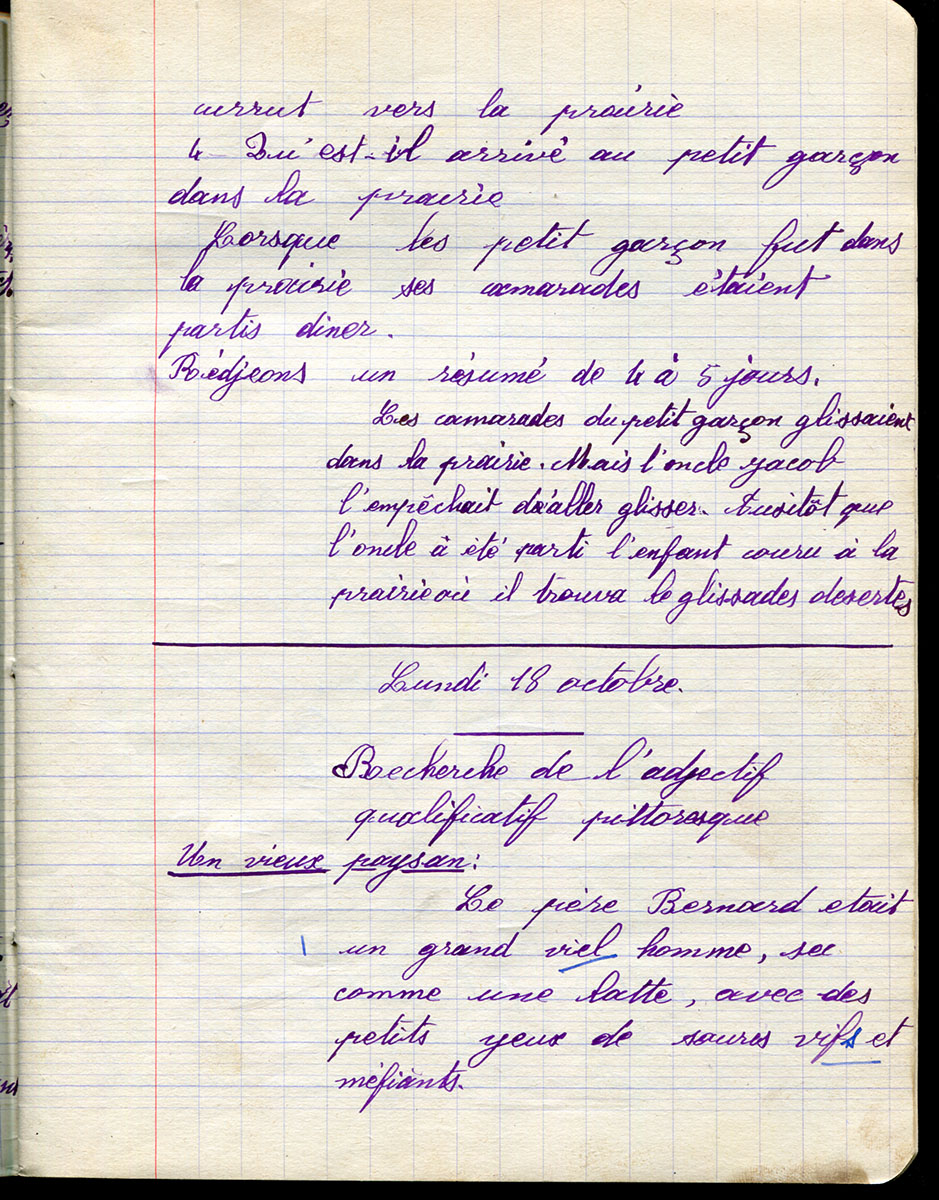 currut vers la prairie
4 - Qu'est-il arrivé au petit garçon
dans la prairie
Lorsque les petit garçon fut dans
la prairie ses camarades étaient
partis diner.
Rédjeons un résumé de 4 à 5 jours.
Les camarades du petit garçon glissaient
dans la prairie. Mais l'oncle Jacob
l'empêchait d'aller glisser. Ausitôt que
l'oncle à été parti l'enfant couru à la
prairie où il trouva le glissades desertes
Lundi 18 octobre.
Recherche de l'adjectif
qualificatif pittoresque
Un vieux paysan:
Le père Bernard etait
un grand viel homme, sec
comme une latte, avec des
petits yeux de soures vifs et
méfiants.